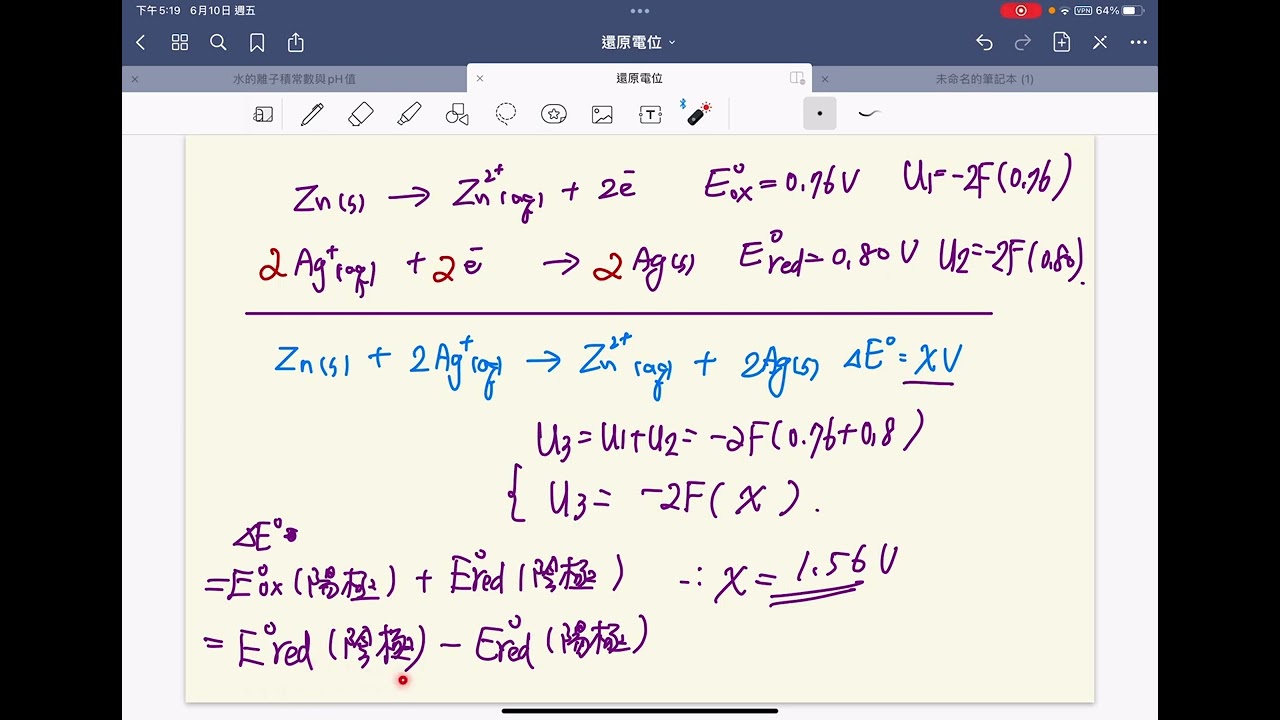 下午5:19 6月10日 週五
VPN 64%
還原電位
水的離子積常數與pH值 還原電位 未命名的筆記本 (1)
T
Zn(s) → Zn²⁺(aq) + 2e⁻ E°ox = 0.76 V U1 = -2F(0.76)
2Ag⁺(aq) + 2e⁻ → 2Ag(s) E°red = 0.80 V U2 = -2F(0.80).
Zn(s) + 2Ag⁺(aq) → Zn²⁺(aq) + 2Ag(s) ΔE° = XV
U3 = U1+U2 = -2F(0.76+0.8)
{ U3 = -2F( X ).
ΔE°
= E°ox (陽極) + E°red (陰極) ∴ X = 1.56 V
= E°red (陰極) - E°red (陽極)